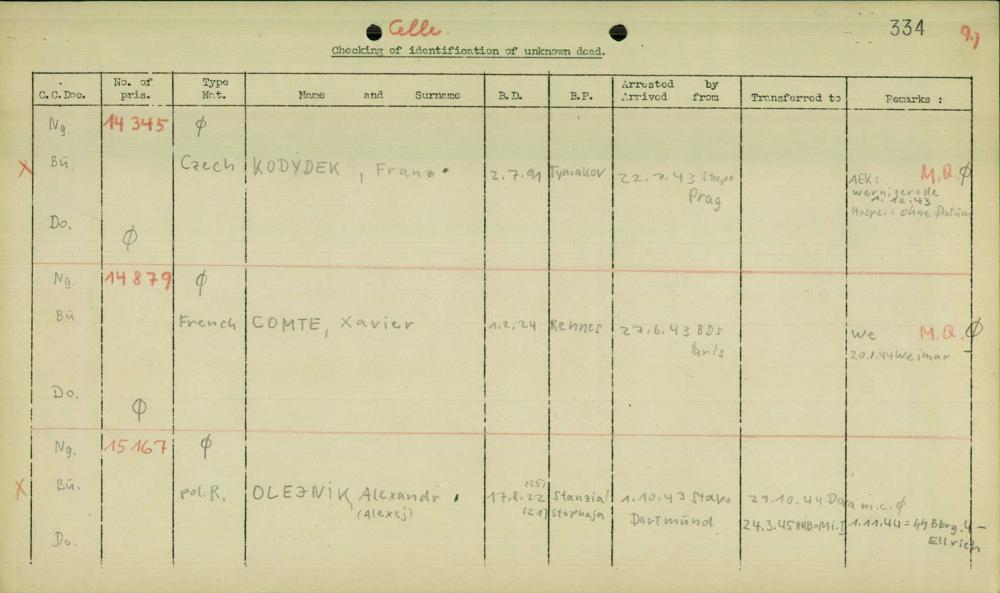 Celle.
334
9.)
Checking of identification of unknown dead.
C.C.Doc. No. of pris. Type Nat. Name and Surname B.D. B.P. Arrested by Arrived from Transferred to Remarks :
Ng. 14345 ø
X Bü. Czech KODYDEK, Franz. 2.7.91 Tymakov 22.7.43 Stapo Prag AEK: M.Q. ø
wernigerode
1.12.43
Hospr.: ohne Datum
Do. ø
Ng. 14879 ø
Bü French COMTE, Xavier 1.2.24 Rennes 27.6.43 BDS Paris We M.Q. ø
20.1.44 Weimar
Do. ø
Ng. 15167 ø
X Bü. pol.R. OLEJNIK, Alexandr. 17.8.22 Stanzia/ 1.10.43 Stapo 29.10.44 Dora m.c. ø
(Alexej) (25) (21) Stephaja Dortmund 24.3.45 HKB=Mi.I 1.11.44= SS Bbrg. 4 -
Ellrich
Do.